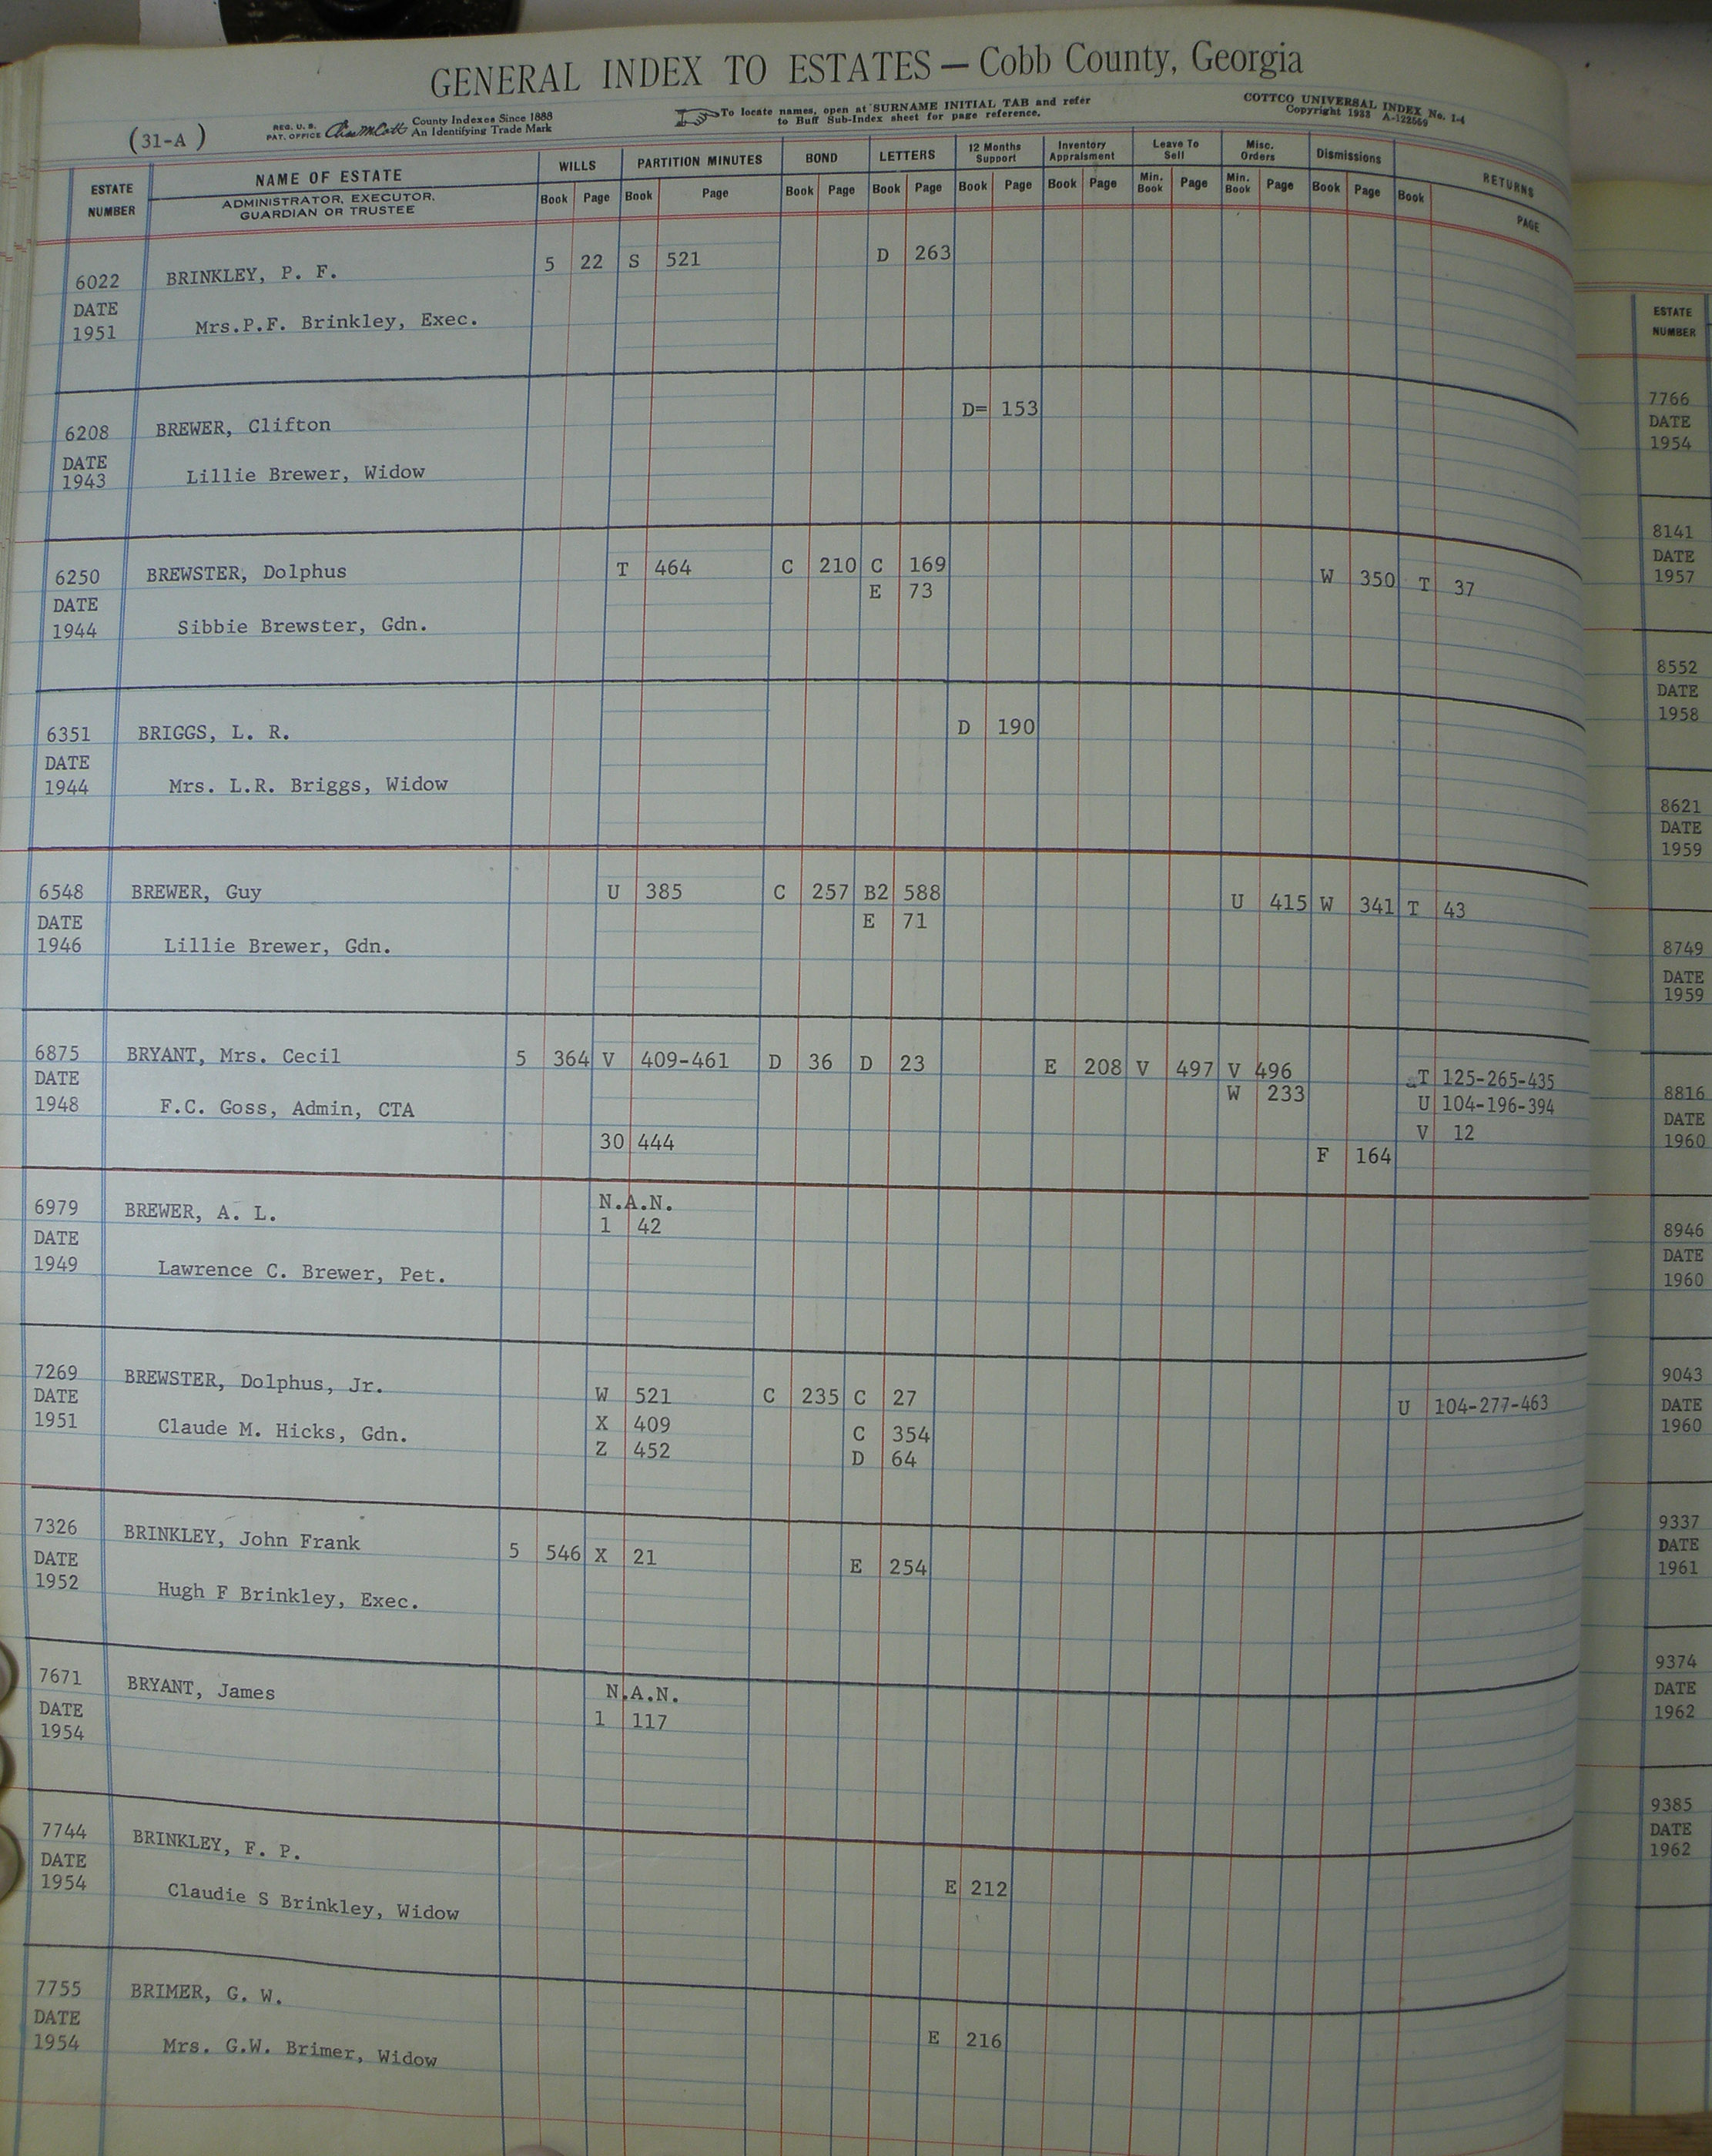 GENERAL INDEX TO ESTATES — Cobb County, Georgia
(31-A) REG. U. S. PAT. OFFICE County Indexes Since 1888 An Identifying Trade Mark
To locate names, open at SURNAME INITIAL TAB and refer to Buff Sub-Index sheet for page reference.
COTTCO UNIVERSAL INDEX No. 1-4
Copyright 1933 A-122569
ESTATE NUMBER NAME OF ESTATE WILLS PARTITION MINUTES BOND LETTERS 12 Months Support Inventory Appraisment Leave To Sell Misc. Orders Dismissions RETURNS
ADMINISTRATOR, EXECUTOR, GUARDIAN OR TRUSTEE Book Page Book Page Book Page Book Page Book Page Book Page Min. Book Page Min. Book Page Book Page Book PAGE
6022 BRINKLEY, P. F. 5 22 S 521 D 263
DATE
1951 Mrs.P.F. Brinkley, Exec.
6208 BREWER, Clifton D= 153
DATE
1943 Lillie Brewer, Widow
6250 BREWSTER, Dolphus T 464 C 210 C 169 W 350 T 37
DATE E 73
1944 Sibbie Brewster, Gdn.
6351 BRIGGS, L. R. D 190
DATE
1944 Mrs. L.R. Briggs, Widow
6548 BREWER, Guy U 385 C 257 B2 588 U 415 W 341 T 43
DATE E 71
1946 Lillie Brewer, Gdn.
6875 BRYANT, Mrs. Cecil 5 364 V 409-461 D 36 D 23 E 208 V 497 V 496 T 125-265-435
DATE W 233 U 104-196-394
1948 F.C. Goss, Admin, CTA V 12
30 444 F 164
6979 BREWER, A. L. N.A.N.
DATE 1 42
1949 Lawrence C. Brewer, Pet.
7269 BREWSTER, Dolphus, Jr. W 521 C 235 C 27 U 104-277-463
DATE X 409 C 354
1951 Claude M. Hicks, Gdn. Z 452 D 64
7326 BRINKLEY, John Frank 5 546 X 21 E 254
DATE
1952 Hugh F Brinkley, Exec.
7671 BRYANT, James N.A.N.
DATE 1 117
1954
7744 BRINKLEY, F. P.
DATE
1954 Claudie S Brinkley, Widow E 212
7755 BRIMER, G. W.
DATE
1954 Mrs. G.W. Brimer, Widow E 216
ESTATE
NUMBER
7766
DATE
1954
8141
DATE
1957
8552
DATE
1958
8621
DATE
1959
8749
DATE
1959
8816
DATE
1960
8946
DATE
1960
9043
DATE
1960
9337
DATE
1961
9374
DATE
1962
9385
DATE
1962